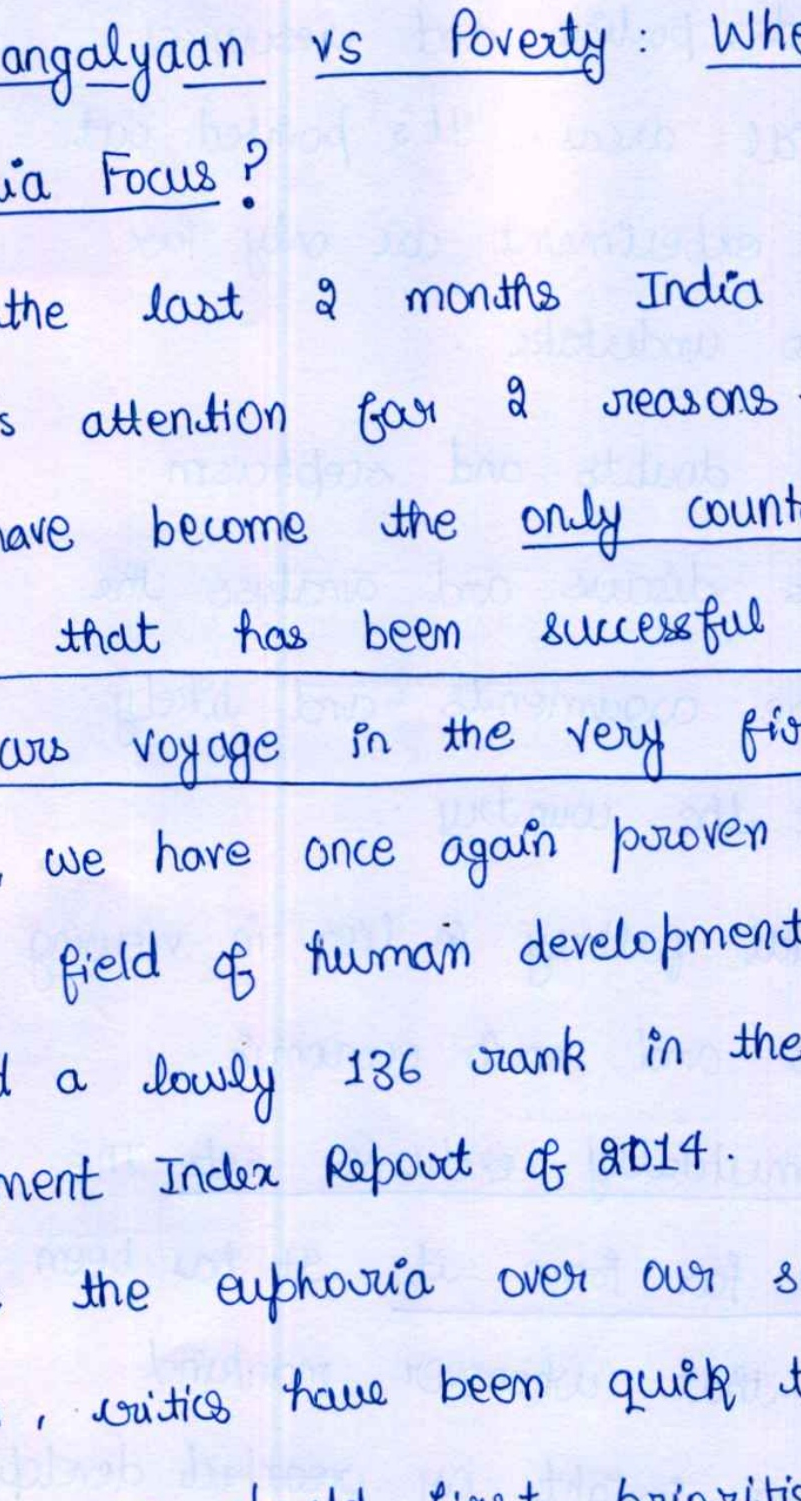 angalyaan vs Poverty : Whe
ia Focus ?
the last 2 months India
s attention for 2 reasons
have become the only count
that has been successful
ars voyage in the very fir
, we have once again proven
field of human development
d a lowly 136 rank in the
ment Index Report of 2014.
the euphoria over our s
, critics have been quick t
first prioritis